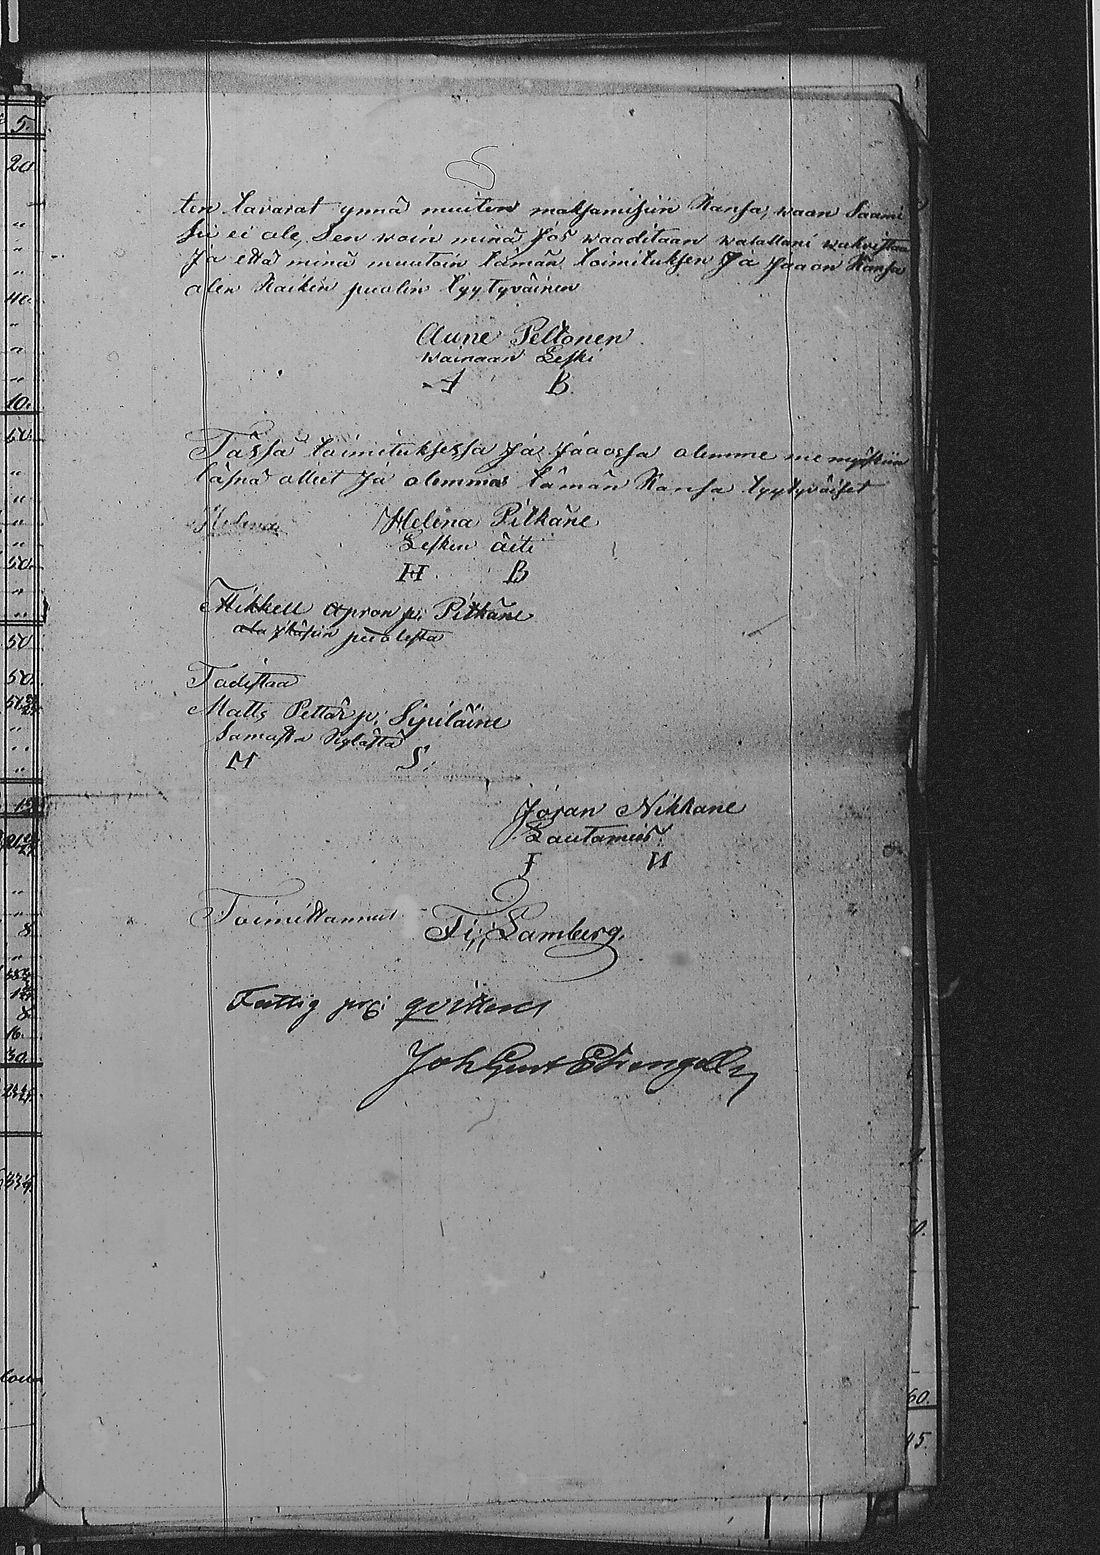 5
ten tavarat ynnä muiten maksamisiin Kansa, waan Saami
sii ei ole, Sen woin minä Jos waaditaan walallani wahwistaa
Ja että minä muutoin tämän toimituksen Ja Jaaon Kansa
olen Kaikin puolin tyytyväinen
Aune Peltonen
Wainaan Leski
A B
Tässä toimituksessa Ja Jaaossa olemme me myöskin
läsnä olleet Ja olemma tämän Kansa tyytyväiset
Helena Helena Pitkäne
Lesken äiti
H B
Mikkell Apron p: Pitkäne
ala ikäsiin puolesta
Todistaa
Matts Pettär p: Sipiläine
Samasta Kylästä
M S.
Jöran Nikkane
Lautamies
I N
Toimittannut F: Lamberg.
Fattig pro: qvitteras
Joh Gust